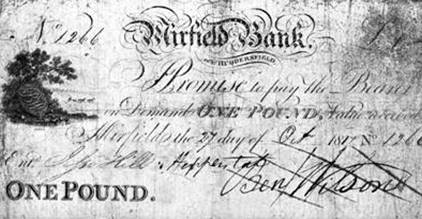 No 1266 Mirfield Bank. £1
near HUDDERSFIELD.
I Promise to pay the Bearer
on Demand ONE POUND, Value received
Mirfield the 27 day of Oct 1817 No 1266
Entd
ONE POUND. Ben Wilson